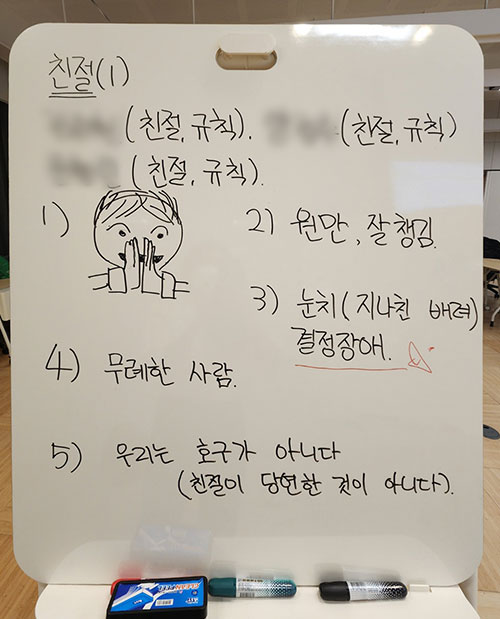 친절(1)
(친절, 규칙). (친절, 규칙)
(친절, 규칙).
1)
2) 원만, 잘챙김.
3) 눈치(지나친 배려)
결정장애.
4) 무례한 사람.
5) 우리는 호구가 아니다
(친절이 당연한 것이 아니다).